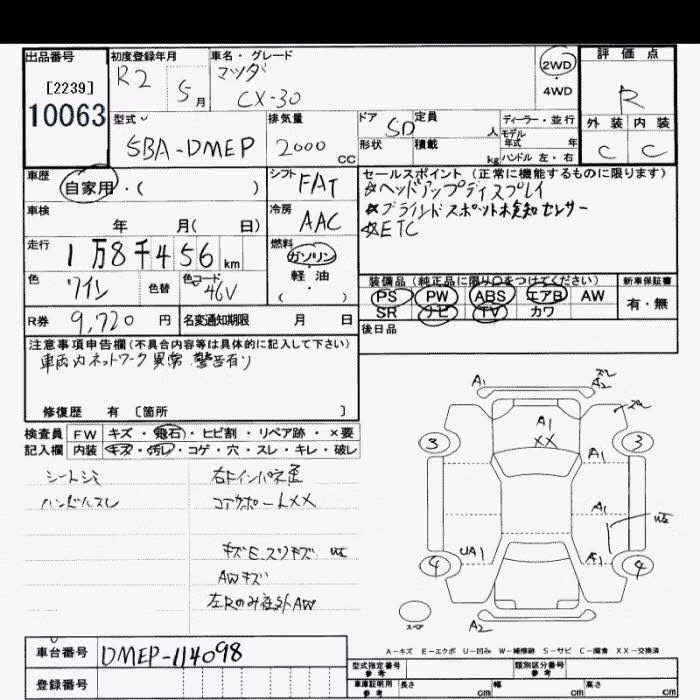 出品番号 初度登録年月 車名・グレード 評価点
[2239] R2 5月 マツダ 2WD・4WD R
10063 CX-30
外装 内装
C C
型式 排気量 ドア 定員 人 ディーラー・並行
5BA-DMEP 2000cc 5D 形状 積載 kg モデル年式 年
ハンドル 左・右
車歴 シフト セールスポイント (正常に機能するものに限ります)
自家用・( ) FAT ☆ヘッドアップディスプレイ
車検 冷房 ☆ブラインドスポット検知センサー
年 月( 日) AAC ☆ETC
走行 燃料
1万8千456km ガソリン
軽・油
( )
色 色替 色コード 装備品 (純正品に限り○をつけてください) 新車保証書
ワイン 46V PS PW ABS エアB AW 有・無
SR ナビ TV カワ
R券 9,720円 名変通知期限 月 日 後日品
注意事項申告欄(不具合内容等は具体的に記入して下さい)
車両内ネットワーク異常 警告有り
修復歴 有 [箇所 ]
検査員 FW キズ・飛石・ヒビ割・リペア跡・×要
記入欄 内装 キズ・汚レ・コゲ・穴・スレ・キレ・破レ
シートシミ 右Fインパネ歪
ハンドルスレ コアサポートXX
キズE スリキズ
AWキズ
左Rのみ社外AW
A1 A2
A1
XX
3 3
A1
A1
UA1
4 4
スペア
A2
A-キズ E-エクボ U-凹み W-補修跡 S-サビ C-腐食 XX-交換済
車台番号 DMEP-114098
登録番号
型式指定番号 参考 類別区分番号 参考
車庫証明用 参考 長さ cm 幅 cm 高さ cm